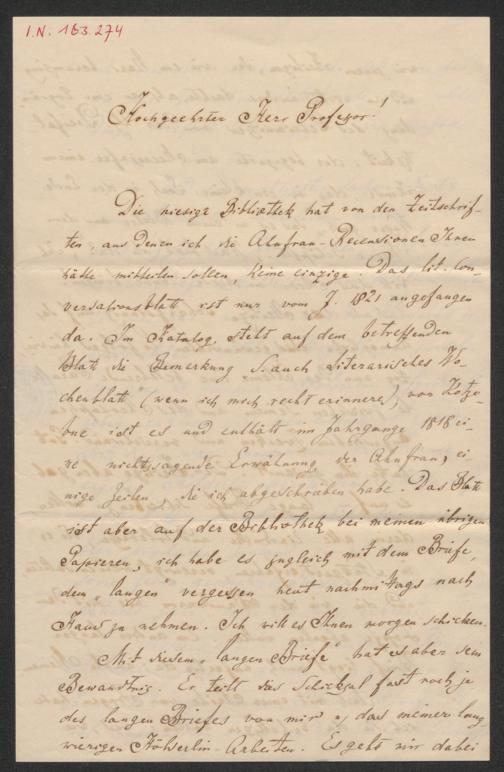 I.N. 163.274
Hochgeehrter Herr Professor!
Die hiesige Bibliothek hat von den Zeitschrif-
ten, aus denen ich die Ahnfrau-Recensionen Ihnen
hätte mitteilen sollen, keine einzige. Das lit. Con-
versationsblatt ist nur vom J. 1821 angefangen
da. Im Katalog steht auf dem betreffenden
Blatt die Bemerkung S. auch Literarisches Wo-
chenblatt" (wenn ich mich recht erinnere), von Kotze-
bue ist es und enthält im Jahrgange 1818 ei-
ne nichtssagende Erwähnung der Ahnfrau, ei
nige Zeilen, die ich abgeschrieben habe. Das Blatt
ist aber auf der Bibliothek bei meinen übrigen
Papieren, ich habe es zugleich mit dem Briefe,
dem „langen" vergessen heut nachmittags nach
Haus zu nehmen. Ich will es Ihnen morgen schicken.
Mit diesem „langen Briefe" hat es aber sein
Bewandtnis. Er teilt das Schicksal fast noch je
des langen Briefes von mir u. das meiner lang
wierigen Hölderlin-Arbeiten. Es geht mir dabei